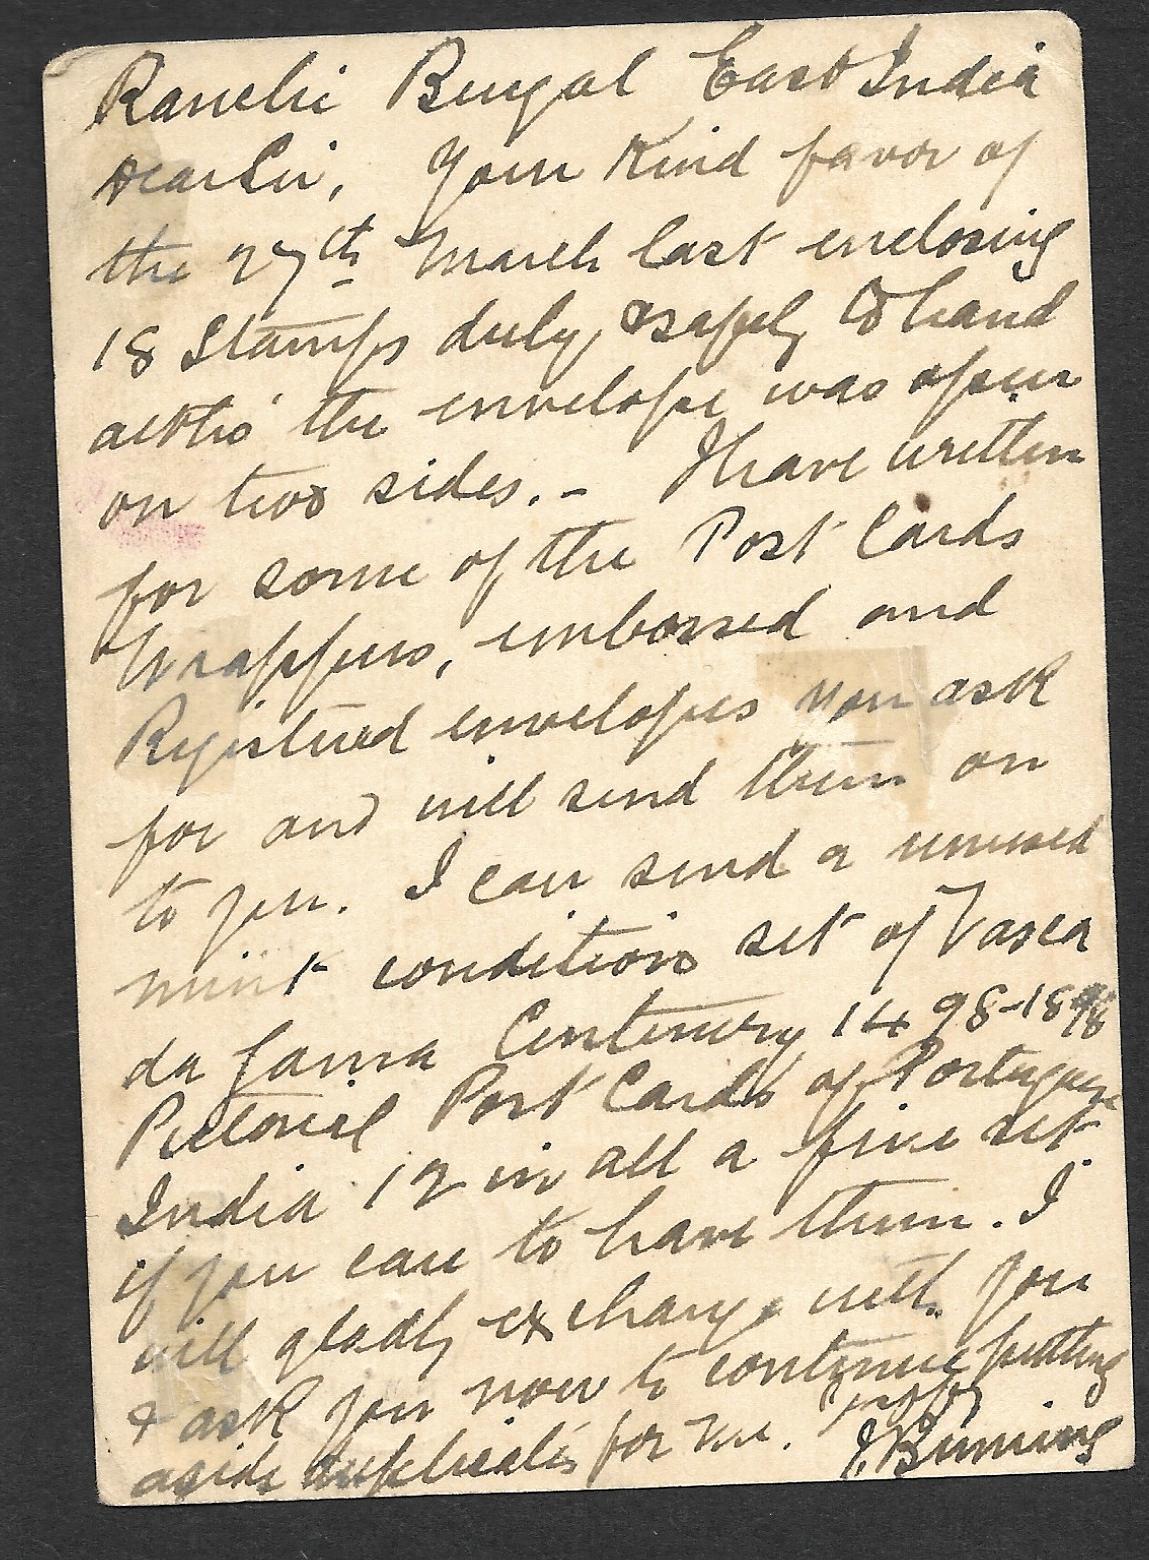 Ranchi Bengal East India
Dear Sir, Your Kind favor of
the 27th March last enclosing
18 Stamps duly, & safely to hand
altho' the envelope was open
on two sides. - I have written
for some of the Post Cards
Wrappers, embossed and
Registered envelopes you ask
for and will send them on
to you. I can send a unused
mint condition set of Vasca
da Gama Centenery 1498-1898
Pictorial Post Cards of Portuguese
India 12 in all a fine set
if you care to have them. I
will gladly exchange with you
& ask you now to continue putting
aside duplicates for me.
J. Bunning